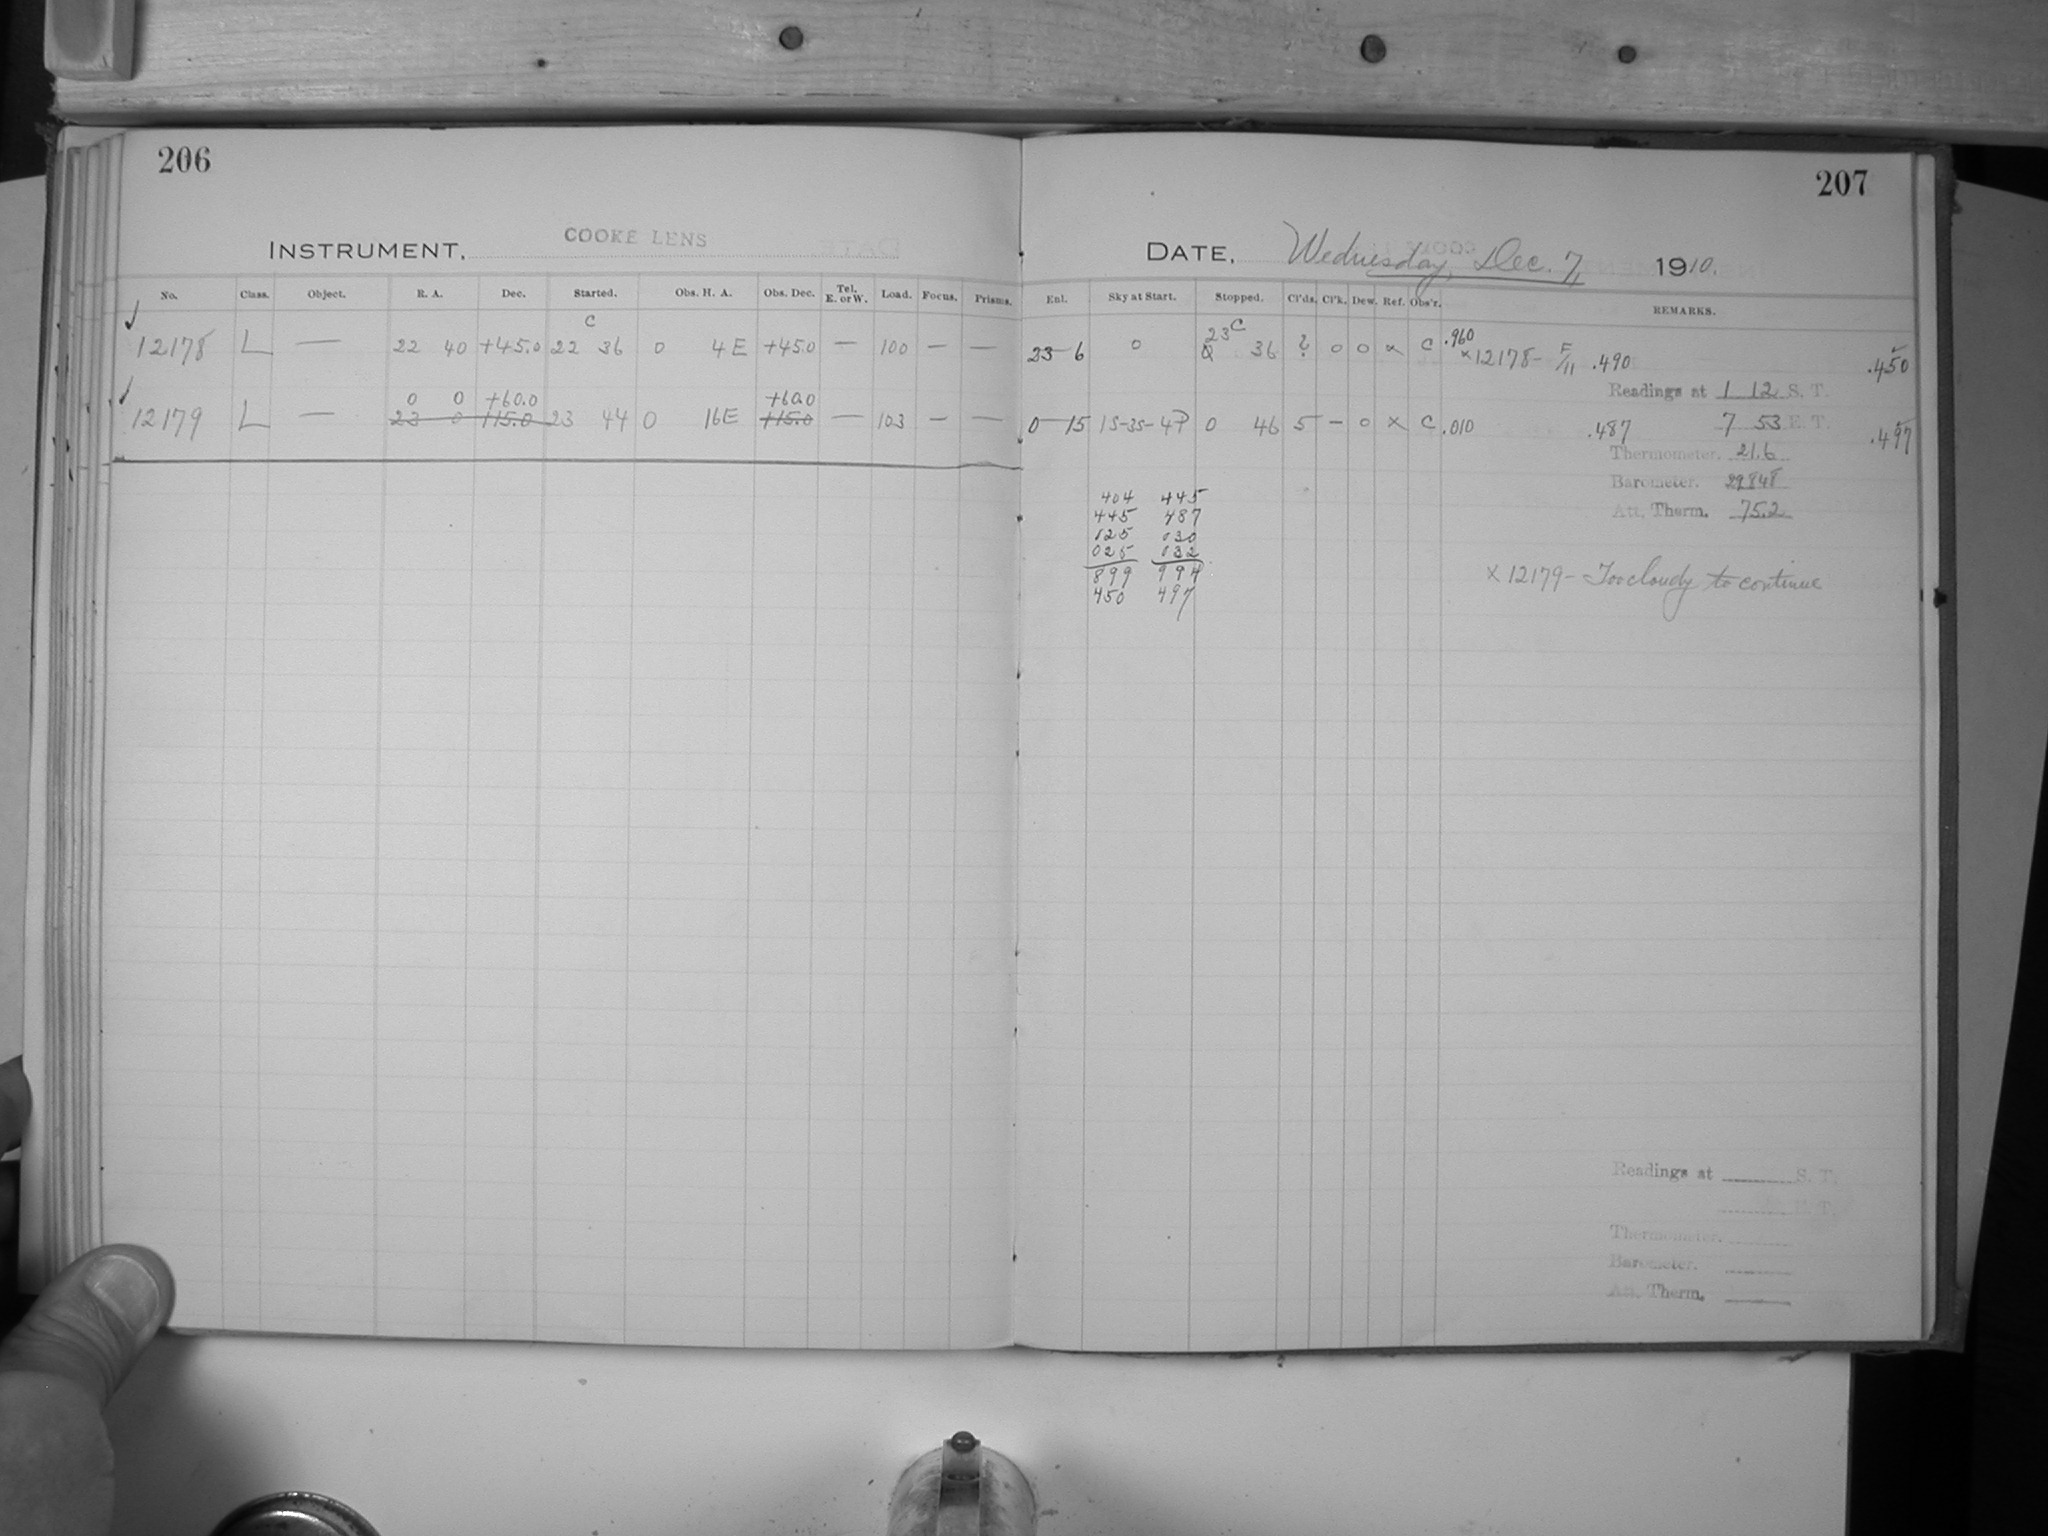 206
INSTRUMENT, COOKE LENS
No. Class. Object. R. A. Dec. Started. Obs. H. A. Obs. Dec. Tel. E. or W. Load. Focus. Prisms.
C
12178 L — 22 40 +45.0 22 36 0 4E +45.0 — 100 — —
0 0 +60.0 +60.0
12179 L — 23 0 +15.0 23 44 0 16E +15.0 — 103 — —
207
DATE, Wednesday, Dec. 7, 1910.
Exl. Sky at Start. Stopped. Cl'ds. Cl'k. Dew. Ref. Obs'r. REMARKS.
23 C
23 6 0 36 ? 0 0 x C .960 x 12178- F/11 .490 .450
Readings at 1 12 S. T.
0 15 15-35-4P 0 46 5 — 0 x C .010 .487 7 53 E. T. .497
Thermometer. 21.6
Barometer. 29.848
Att. Therm. 75.2
404 445
445 487
025 030
025 032
899 994
450 497
x 12179- Too cloudy to continue
Readings at S. T.
E. T.
Thermometer.
Barometer.
Att. Therm.